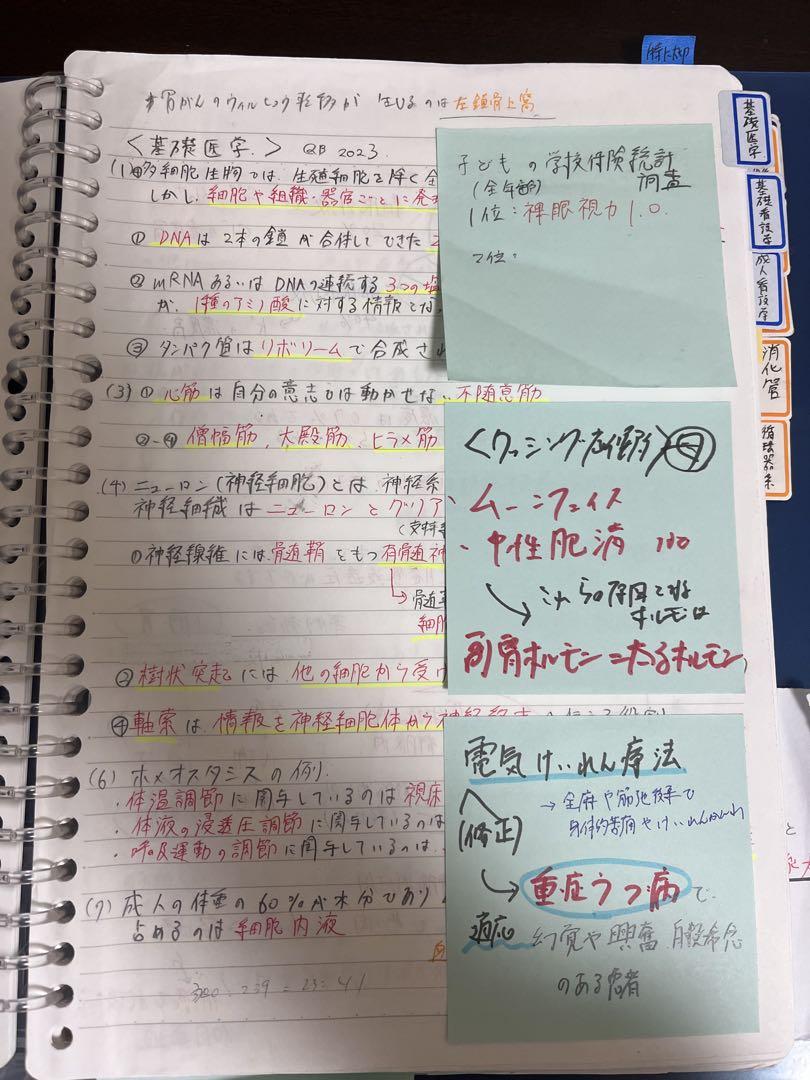 #胃がんのウィルヒョウ転移が生じるのは左鎖骨上窩
<基礎医学> QB 2023
(1) 多細胞生物では、生殖細胞を除く全
しかし、細胞や組織・器官ごとに発
① DNAは2本の鎖が合体してできた2
② mRNAあるいはDNAの連続する3つの塩
が、1種のアミノ酸に対する情報とな
③ タンパク質はリボソームで合成され
(3) ① 心筋は自分の意志では動かせない不随意筋
②-④ 僧帽筋、大殿筋、ヒラメ筋
(4) ニューロン(神経細胞)とは、神経系
神経組織はニューロンとグリア
① 神経線維には髄鞘をもつ有髄神
髄
細胞
② 樹状突起には、他の細胞から受け
④ 軸索は、情報を神経細胞体から神経終末
(6) ホメオスタシスの例
・体温調節に関与しているのは視床
・体液の浸透圧調節に関与しているのは
・呼吸運動の調節に関与しているのは、
(7) 成人の体重の60%が水分であり
占めるのは細胞内液
300:239=23:41
子どもの学校保険統計
調査
(全年齢)
1位:裸眼視力1.0.
2位:
<クッシング症候群>
ムーンフェイス
・中性肥満
→これらの原因となる
ホルモンは
副腎ホルモン=太るホルモン
電気けいれん療法
(修正)
→全麻や筋弛緩で
身体的苦痛やけいれん
→重症うつ病で
適応 幻覚や興奮、自殺希念
のある患者
基礎医学
基礎看護学
成人看護学
消化管
循環器系